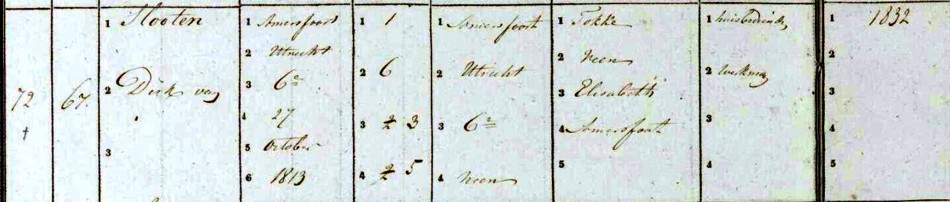 72 †
67.
1 Slooten
2 Dirk van
3
1 Amersfoort
2 Utrecht
3 6e
4 27
5 October
6 1813
1 1
2 6
3 3
4 5
1 Amersfoort
2 Utrecht
3 6e
4 neen
1 Fokke
2 Neen
3 Elisabeth
4 Amersfoort
5
1
2 werkman
3
4
1 1832
2
3
4
5